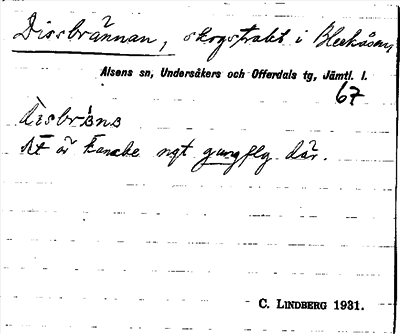 Dissbrännan, skogstrakt i Bleckåsen,
Alsens sn, Undersåkers och Offerdals tg, Jämtl. l.
67
dìsbràna
Det är kanske ngt gungflg där.
C. LINDBERG 1931.